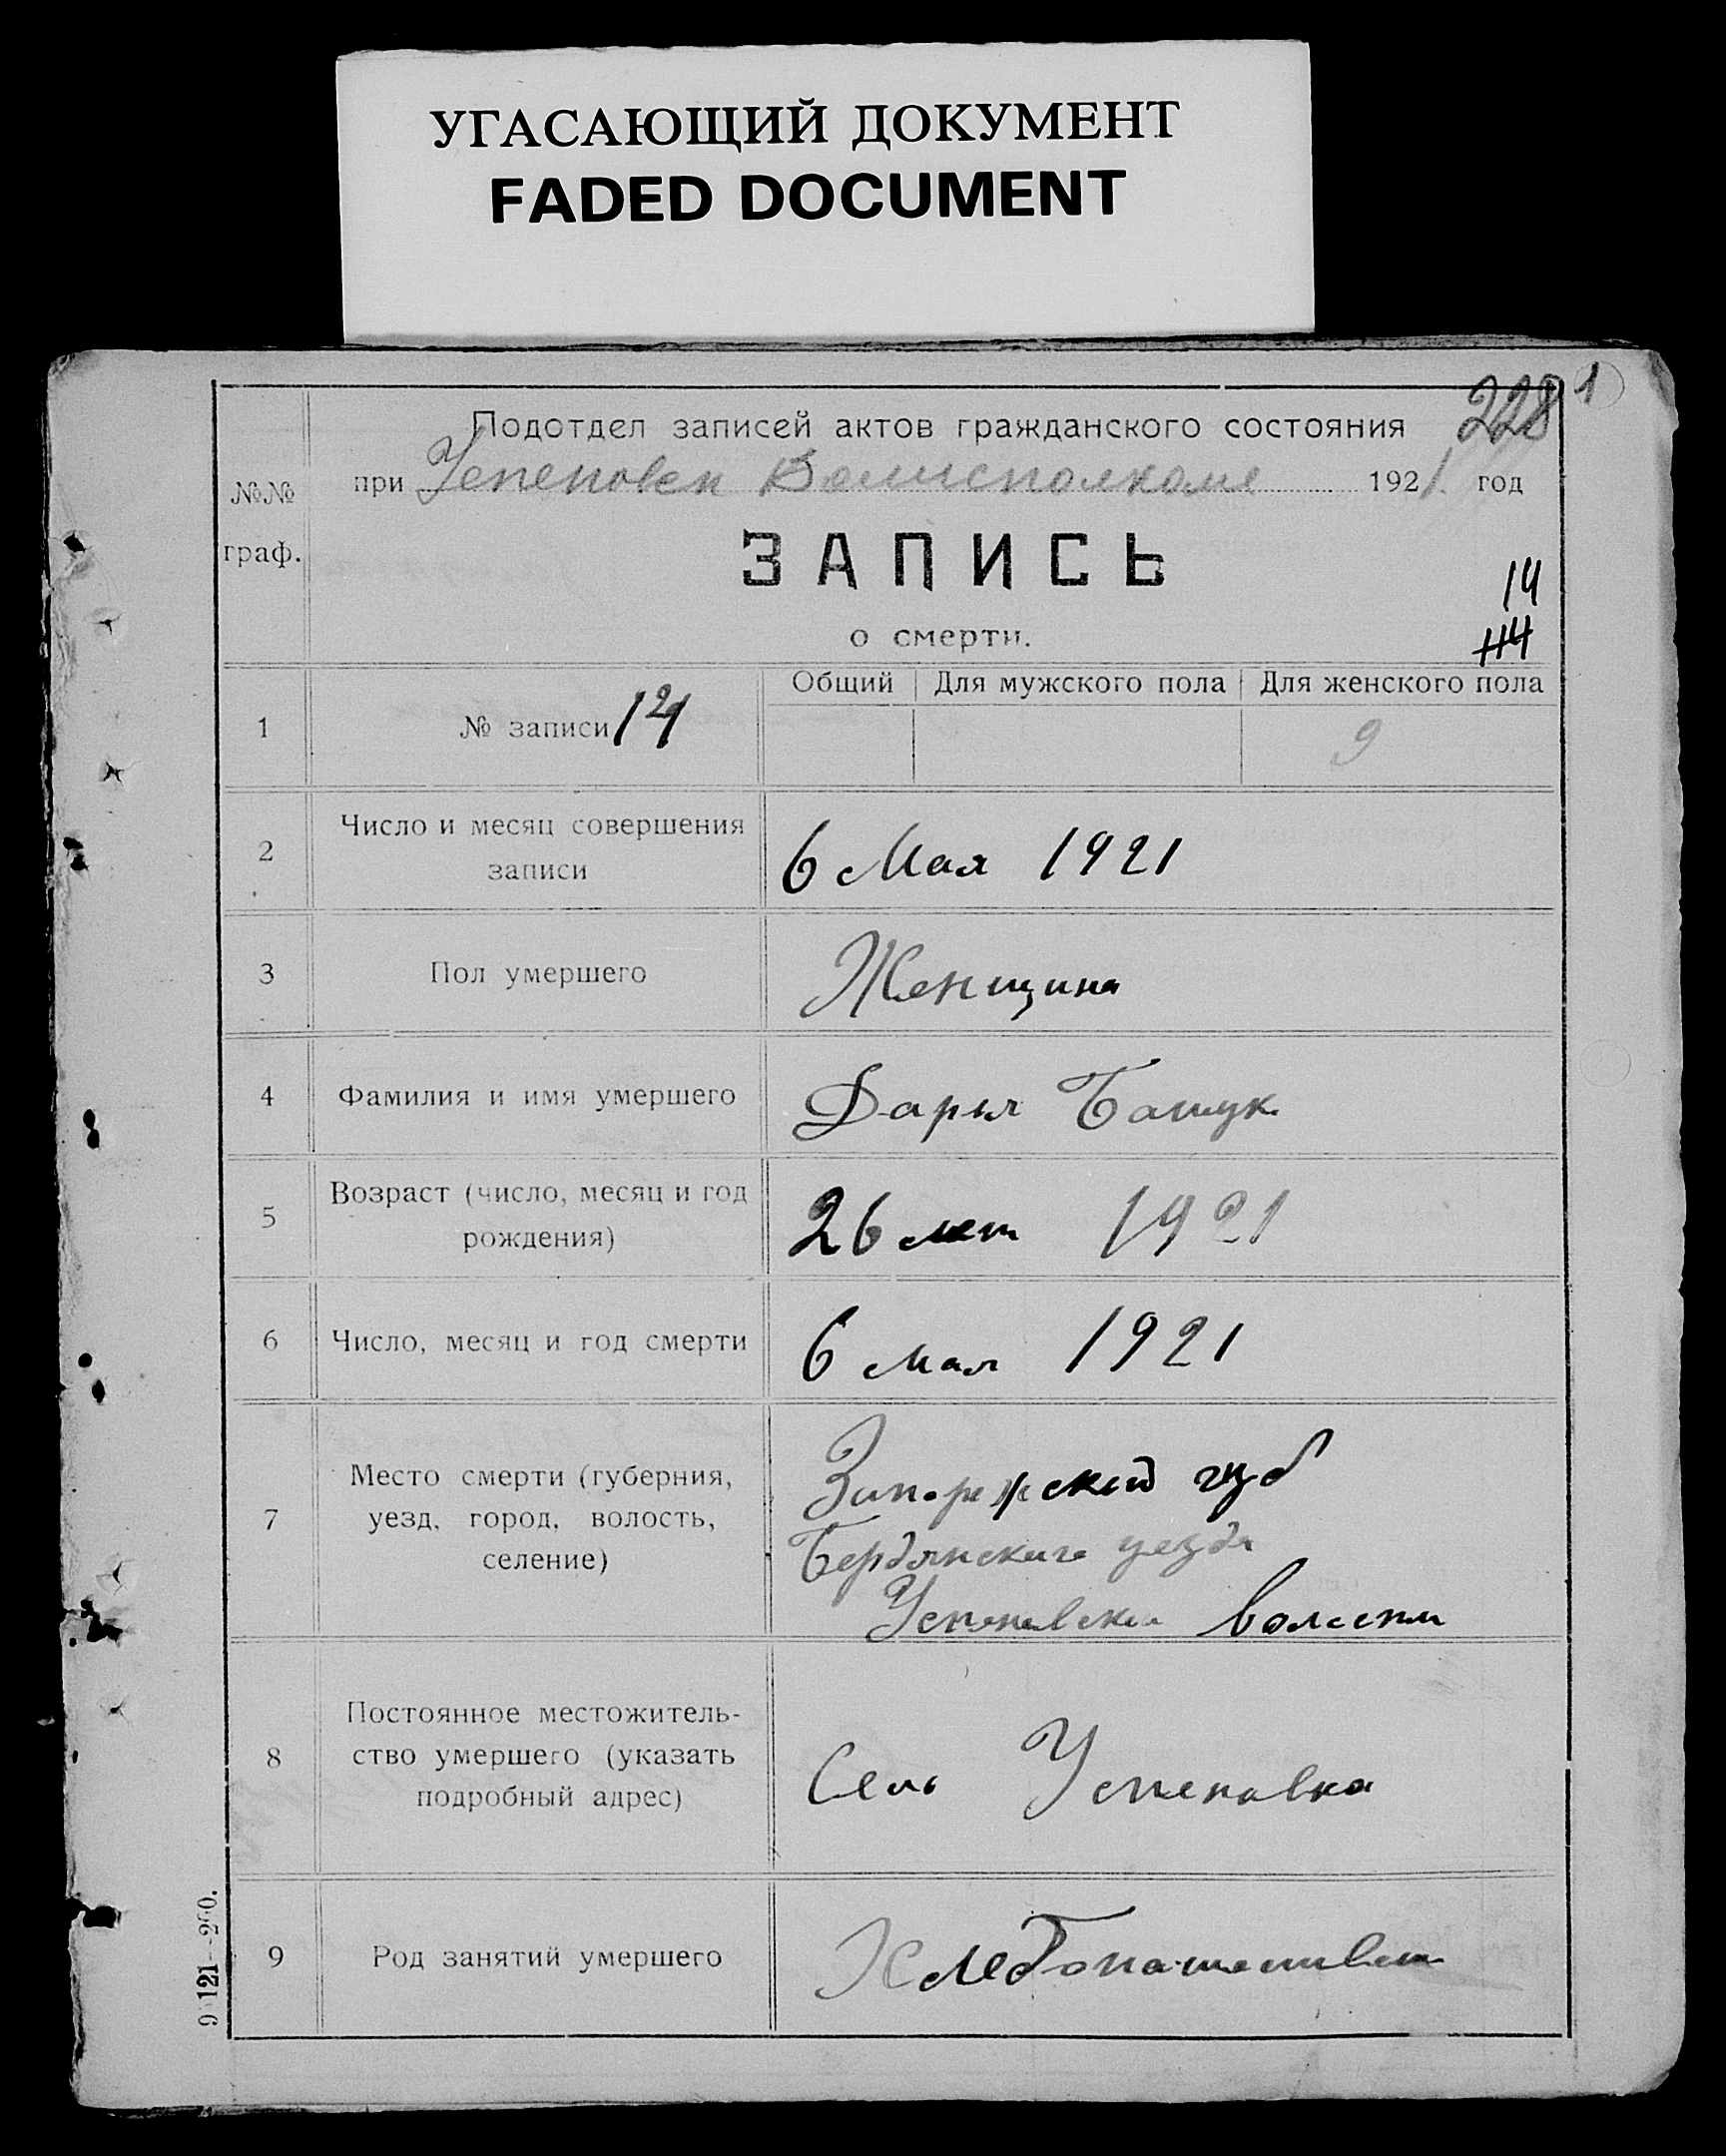 УГАСАЮЩИЙ ДОКУМЕНТ
FADED DOCUMENT
228 1
Подотдел записей актов гражданского состояния
при Успеновск Волисполкоме 1921 год
№№
граф.
ЗАПИСЬ
14
о смерти.
Общий Для мужского пола Для женского пола
1 № записи 9
2 Число и месяц совершения
записи
6 Мая 1921
3 Пол умершего Женщина
4 Фамилия и имя умершего Дарья Башук
5 Возраст (число, месяц и год
рождения)
26 лет 1921
6 Число, месяц и год смерти 6 мая 1921
7 Место смерти (губерния,
уезд, город, волость,
селение)
Запорожской губ
Бердянского уезда
Успеновской волости
8 Постоянное местожитель-
ство умершего (указать
подробный адрес)
Село Успеновка
9 Род занятий умершего Хлебопашество